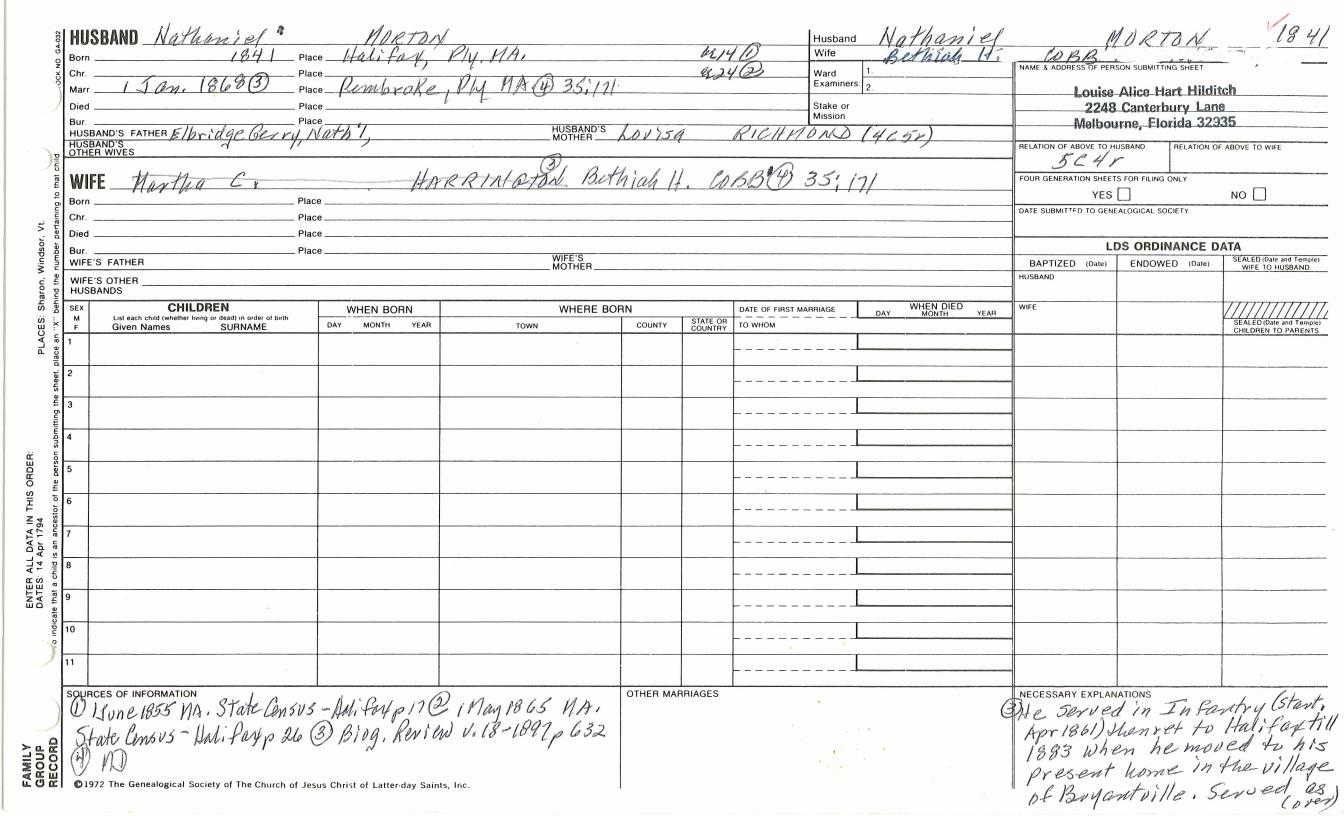 HUSBAND Nathaniel MORTON
Born 1841 Place Halifax, Ply. MA. æ14 ①
Chr. Place æ24 ②
Marr 1 Jan. 1868 ③ Place Pembroke, Ply MA ④ 35:171
Died Place
Bur. Place
HUSBAND'S FATHER Elbridge Gerry, Nath'l, HUSBAND'S MOTHER Lovisa RICHMOND (4C5r)
HUSBAND'S OTHER WIVES
WIFE Martha C. HARRINGTON ③ Bethiah H. COBB ④ 35:171
Born Place
Chr. Place
Died Place
Bur. Place
WIFE'S FATHER WIFE'S MOTHER
WIFE'S OTHER HUSBANDS
Husband Nathaniel MORTON 1841
Wife Bethiah H. COBB
Ward Examiners 1.
2.
Stake or Mission
NAME & ADDRESS OF PERSON SUBMITTING SHEET
Louise Alice Hart Hilditch
2248 Canterbury Lane
Melbourne, Florida 32935
RELATION OF ABOVE TO HUSBAND RELATION OF ABOVE TO WIFE
5C4r
FOUR GENERATION SHEETS FOR FILING ONLY
YES NO
DATE SUBMITTED TO GENEALOGICAL SOCIETY
LDS ORDINANCE DATA
BAPTIZED (Date) ENDOWED (Date) SEALED (Date and Temple) WIFE TO HUSBAND
HUSBAND
WIFE
SEALED (Date and Temple) CHILDREN TO PARENTS
SEX
M
F
CHILDREN
List each child (whether living or dead) in order of birth
Given Names SURNAME
WHEN BORN
DAY MONTH YEAR
WHERE BORN
TOWN COUNTY STATE OR COUNTRY
DATE OF FIRST MARRIAGE
TO WHOM
WHEN DIED
DAY MONTH YEAR
1
2
3
4
5
6
7
8
9
10
11
SOURCES OF INFORMATION
① 1 June 1855 MA. State Census - Halifax p 17 ② 1 May 1865 MA.
State Census - Halifax p 26 ③ Biog. Review v. 18-1897, p 632
④
OTHER MARRIAGES
NECESSARY EXPLANATIONS
③ He served in Infantry (start.
Apr 1861) then ret to Halifax till
1883 when he moved to his
present home in the village
of Bryantville. Served as
(over)
©1972 The Genealogical Society of The Church of Jesus Christ of Latter-day Saints, Inc.
FAMILY
GROUP
RECORD
ENTER ALL DATA IN THIS ORDER:
DATES: 14 Apr 1794
PLACES: Sharon, Windsor, Vt.
To indicate that a child is an ancestor of the person submitting the sheet, place an "X" behind the number pertaining to that child
OCK NO. GA-032